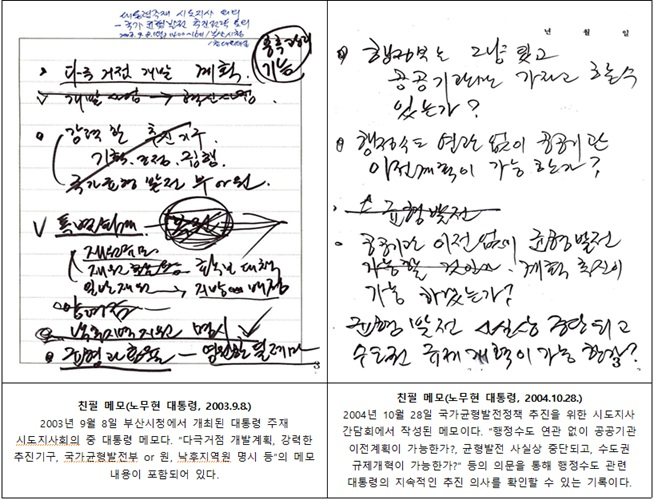 대통령주재 시도지사 회의
- 국가 균형발전 추진전략 회의
융복합의
기능
다극 거점 개발 계획
개발사업 → 혁신사업
강력한 추진기구
기획. 조정. 집행.
국가균형발전 부 or 원.
V 특별회계
재원
일반재원 → 지방에 배정
낙후지역 지원 명시
균형과 효율 -
3
년 월 일
행정부는 그냥 두고
공공기관만 가지고 할 수
있는가?
행정수도 연관 없이 공공기관
이전계획이 가능한가?
균형발전
공공기관 이전 없이 균형발전
가능할 것인가. 계획 추진이
가능 하겠는가?
균형 발전 사실상 중단되고
수도권 규제 개혁이 가능한가?
친필 메모(노무현 대통령, 2003.9.8.)
2003년 9월 8일 부산시청에서 개최된 대통령 주재
시도지사회의 중 대통령 메모다. "다극거점 개발계획, 강력한
추진기구, 국가균형발전부 or 원, 낙후지역원 명시 등"의 메모
내용이 포함되어 있다.
친필 메모(노무현 대통령, 2004.10.28.)
2004년 10월 28일 국가균형발전정책 추진을 위한 시도지사
간담회에서 작성된 메모이다. "행정수도 연관 없이 공공기관
이전계획이 가능한가?, 균형발전 사실상 중단되고, 수도권
규제개혁이 가능한가?" 등의 의문을 통해 행정수도 관련
대통령의 지속적인 추진 의사를 확인할 수 있는 기록이다.